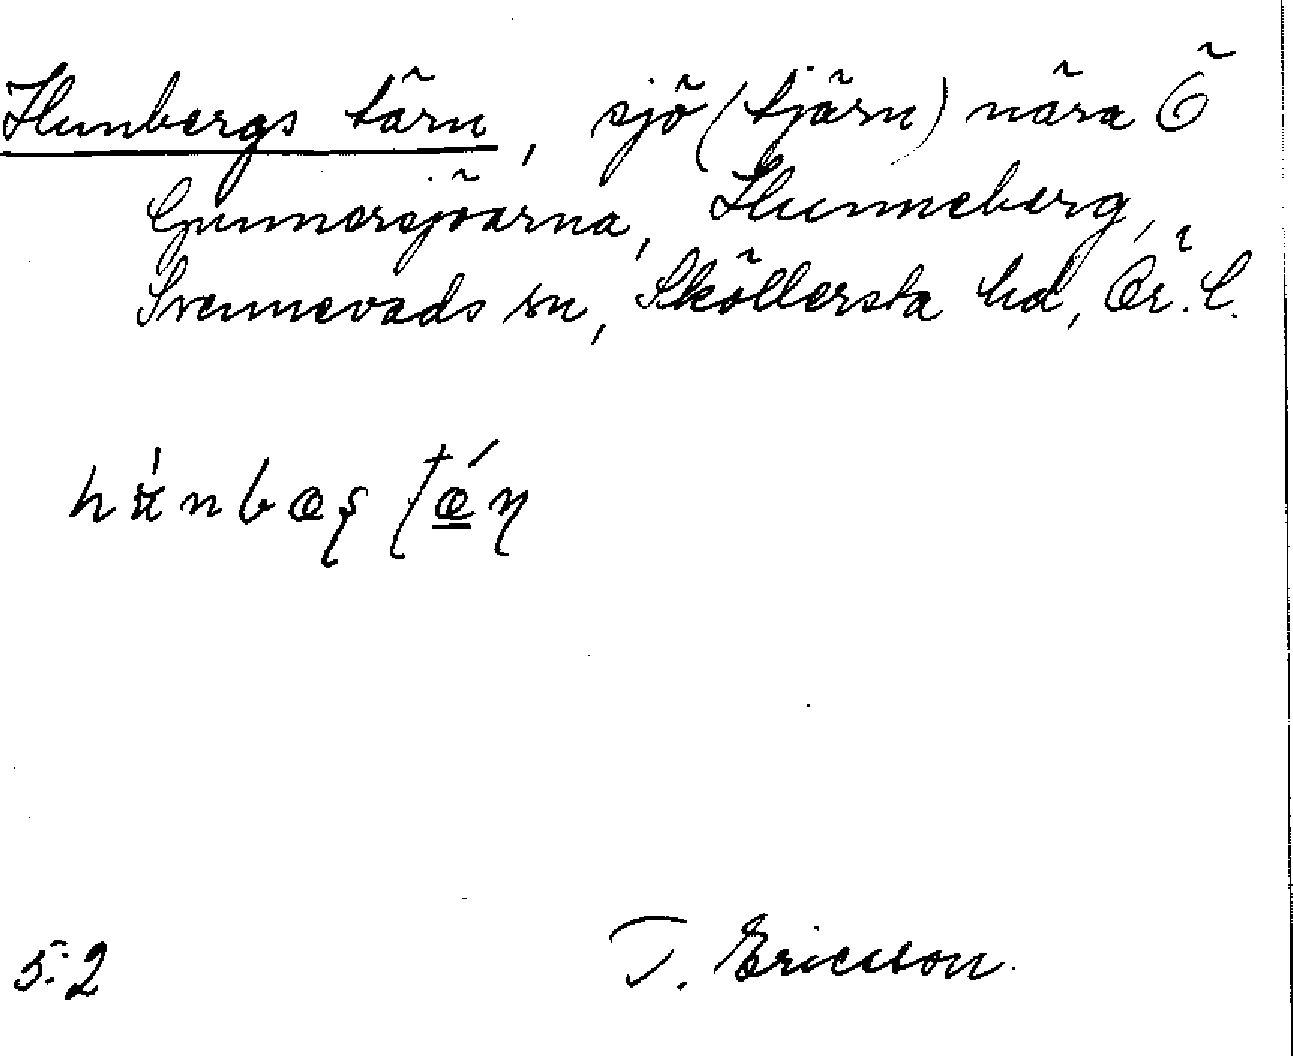 Hunbergs tärn, sjö (tjärn) nära Ö
Gunnarsjöarna, Hunneberg,
Svennevads sn, Sköllersta hd, Ör. l.
5:2 T. Ericsson